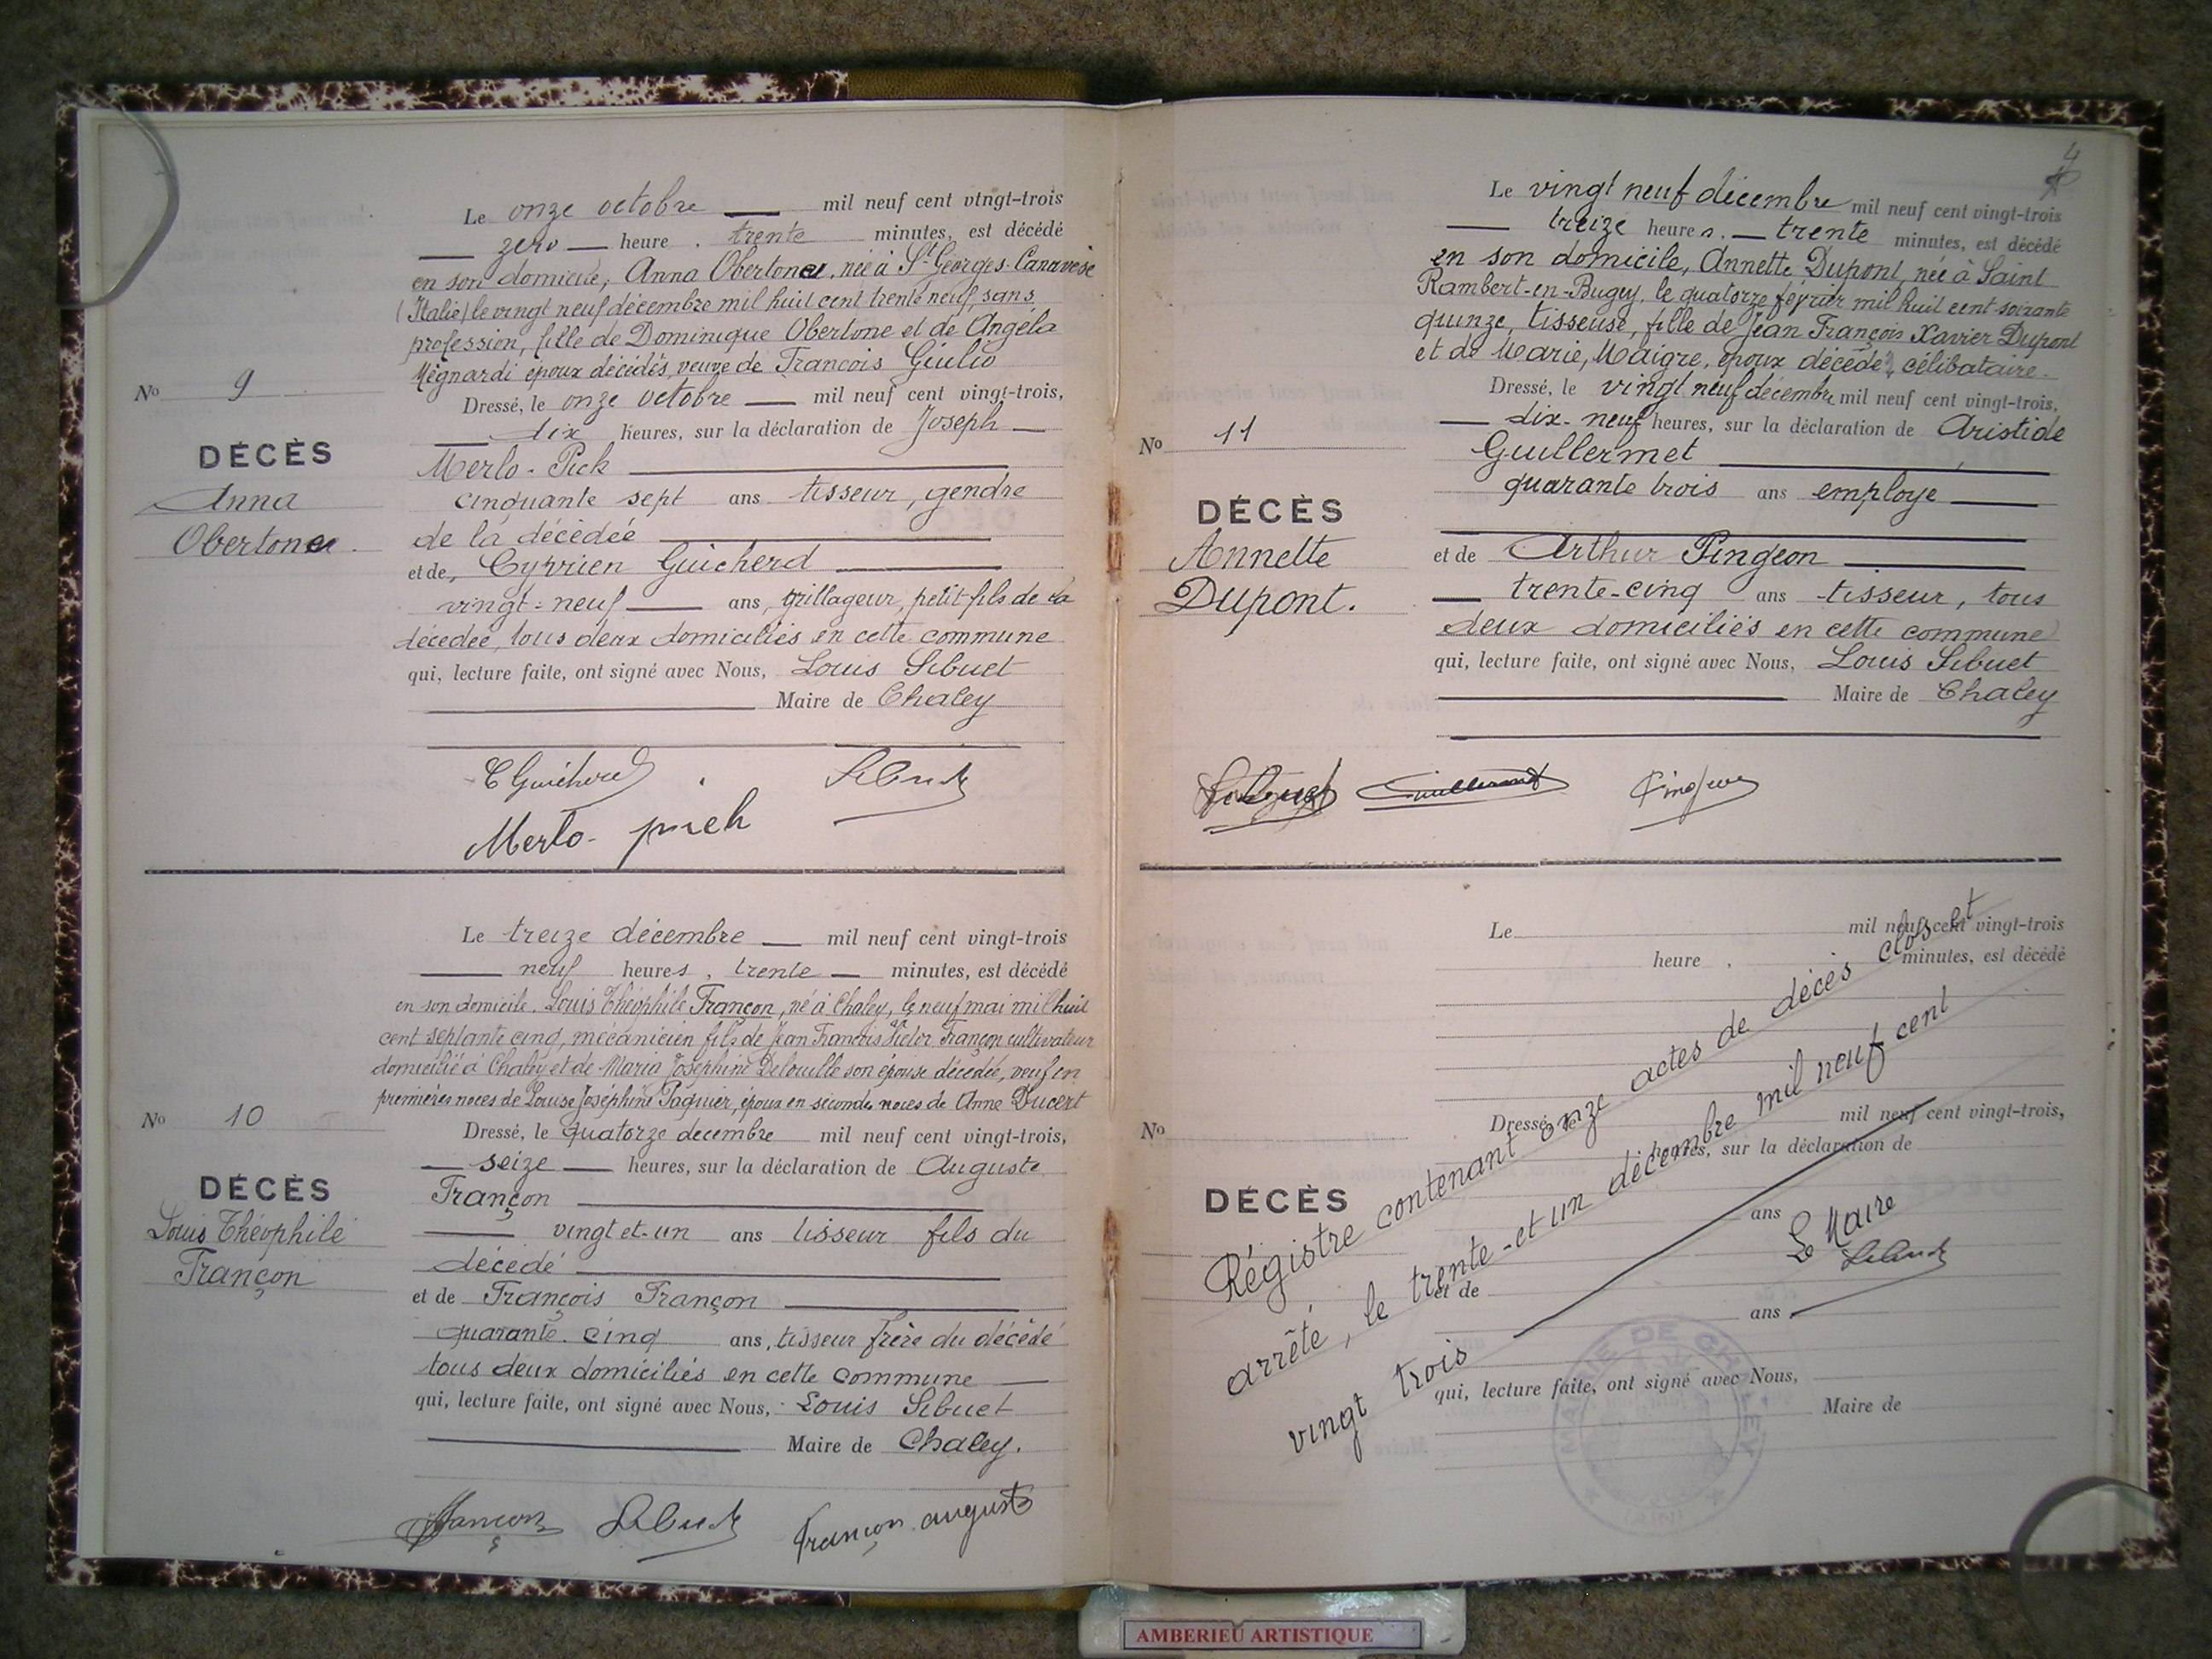 Le onze octobre mil neuf cent vingt-trois
zero heure, trente minutes, est décédé
en son domicile, Anna Obertone, née à St Georges-Canavese
(Italie) le vingt neuf décembre mil huit cent trente neuf, sans
profession, fille de Dominique Obertone et de Angéla
Mégnardi époux décédés, veuve de Francois Giulio
No 9
Dressé, le onze octobre mil neuf cent vingt-trois,
dix heures, sur la déclaration de Joseph
DÉCÈS
Merlo-Pick
Anna
cinquante sept ans tisseur, gendre
Obertone.
de la décédée
et de, Cyprien Guicherd
vingt-neuf ans, grillageur, petit-fils de la
décédée, tous deux domiciliés en cette commune
qui, lecture faite, ont signé avec Nous, Louis Sibuet
Maire de Chaley
C Guicherd Sibuet
Merlo-pich
Le treize décembre mil neuf cent vingt-trois
neuf heures, trente minutes, est décédé
en son domicile, Louis Théophile Françon, né à Chaley, le neuf mai mil huit
cent septante cinq, mécanicien fils de Jean Francois Victor Françon cultivateur
domicilié à Chaley et de Maria Joséphine Delouille son épouse décédée, veuf en
premières noces de Louise Joséphine Pagnier, époux en secondes noces de Anne Ducert
No 10
Dressé, le quatorze decembre mil neuf cent vingt-trois,
seize heures, sur la déclaration de Auguste
DÉCÈS
Françon
Louis Théophile
vingt et-un ans tisseur fils du
Françon
décédé
et de François Françon
quarante-cinq ans, tisseur frère du décédé
tous deux domiciliés en cette commune
qui, lecture faite, ont signé avec Nous, Louis Sibuet
Maire de Chaley.
Françon Sibuet Françon auguste
4
Le vingt neuf décembre mil neuf cent vingt-trois
treize heures. trente minutes, est décédé
en son domicile, Annette Dupont, née à Saint
Rambert-en-Bugey, le quatorze février mil huit cent-soixante
quinze, tisseuse, fille de Jean François Xavier Dupont
et de Marie, Maigre, époux décédés, célibataire.
Dressé, le vingt neuf décembre mil neuf cent vingt-trois,
No 11
dix-neuf heures, sur la déclaration de Aristide
Guillermet
quarante trois ans employe
DÉCÈS
Annette
et de Arthur Pingeon
Dupont.
trente-cinq ans tisseur, tous
deux domiciliés en cette commune
qui, lecture faite, ont signé avec Nous, Louis Sibuet
Maire de Chaley
Sibuet Guillermet Pingeon
Le mil neuf cent vingt-trois
heure, minutes, est décédé
Dressé, le mil neuf cent vingt-trois,
No
heures, sur la déclaration de
DÉCÈS
ans
et de
ans
qui, lecture faite, ont signé avec Nous,
Maire de
Régistre contenant onze actes de décès clos et
arrêté, le trente-et un décembre mil neuf cent
vingt trois
Le Maire
Sibuet
MAIRIE DE CHALEY
AMBERIEU ARTISTIQUE